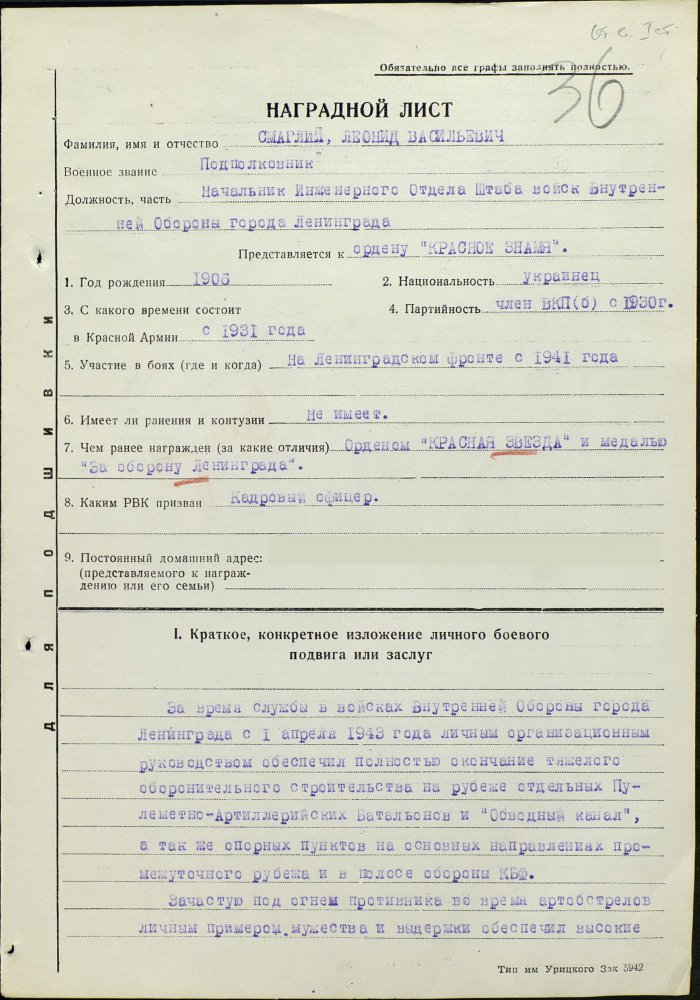 36
Обязательно все графы заполнять полностью.
НАГРАДНОЙ ЛИСТ
Фамилия, имя и отчество СМАГЛИЙ, ЛЕОНИД ВАСИЛЬЕВИЧ
Военное звание Подполковник
Должность, часть Начальник Инженерного Отдела Штаба войск Внутрен-
ней Обороны города Ленинграда
Представляется к ордену "КРАСНОЕ ЗНАМЯ".
1. Год рождения 2. Национальность украинец
3. С какого времени состоит 4. Партийность член ВКП(б) с 1930г.
в Красной Армии с 1931 года
5. Участие в боях (где и когда) На Ленинградском фронте с 1941 года
6. Имеет ли ранения и контузии Не имеет.
7. Чем ранее награжден (за какие отличия) Орденом "КРАСНАЯ ЗВЕЗДА" и медалью
"За оборону Ленинграда".
8. Каким РВК призван Кадровый офицер.
9. Постоянный домашний адрес:
(представляемого к награж-
дению или его семьи)
I. Краткое, конкретное изложение личного боевого
подвига или заслуг
За время службы в войсках Внутренней Обороны города
Ленинграда с I апреля 1943 года личным организационным
руководством обеспечил полностью окончание тяжелого
оборонительного строительства на рубеже отдельных Пу-
леметно-Артиллерийских Батальонов и "Обводный канал",
а так же опорных пунктов на основных направлениях про-
межуточного рубежа и в полосе обороны КБФ.
Зачастую под огнем противника во время артобстрелов
личным примером мужества и выдержки обеспечил высокие
Тип им Урицкого Зак 5942
ДЛЯ ПОДШИВКИ